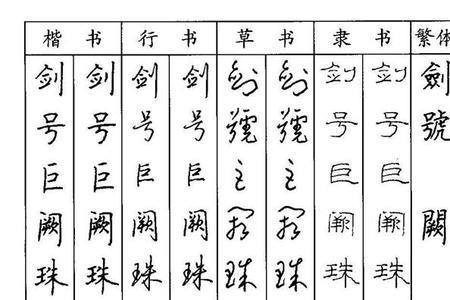 楷书 行书 草书 隶书 繁体
剑 剑 剑 剑 剑 剑 剑 剑 劍
号 号 号 号 號 號 号 号 號
巨 巨 巨 巨 巨 巨 巨 巨
阙 阙 阙 阙 阙 阙 阙 阙 闕
珠 珠 珠 珠 珠 珠 珠 珠